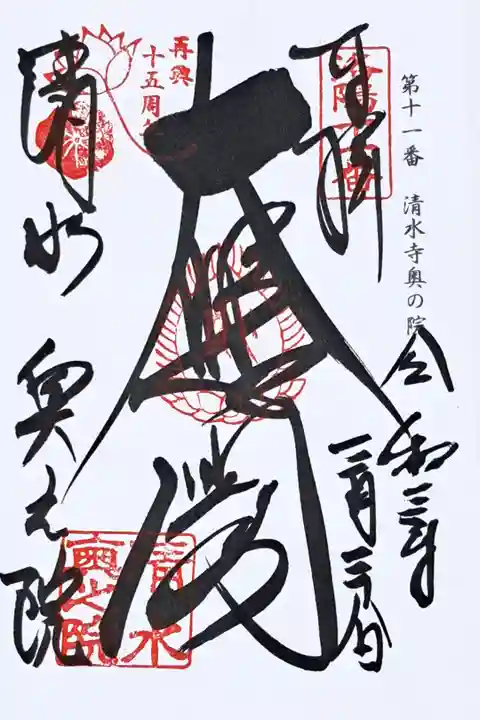 第十一番　清水寺奥の院
令和三年
三月二十八日
奉拝
洛陽十一番
大悲殿
再興
十五周年
清水
奥之院
清水
奥之院